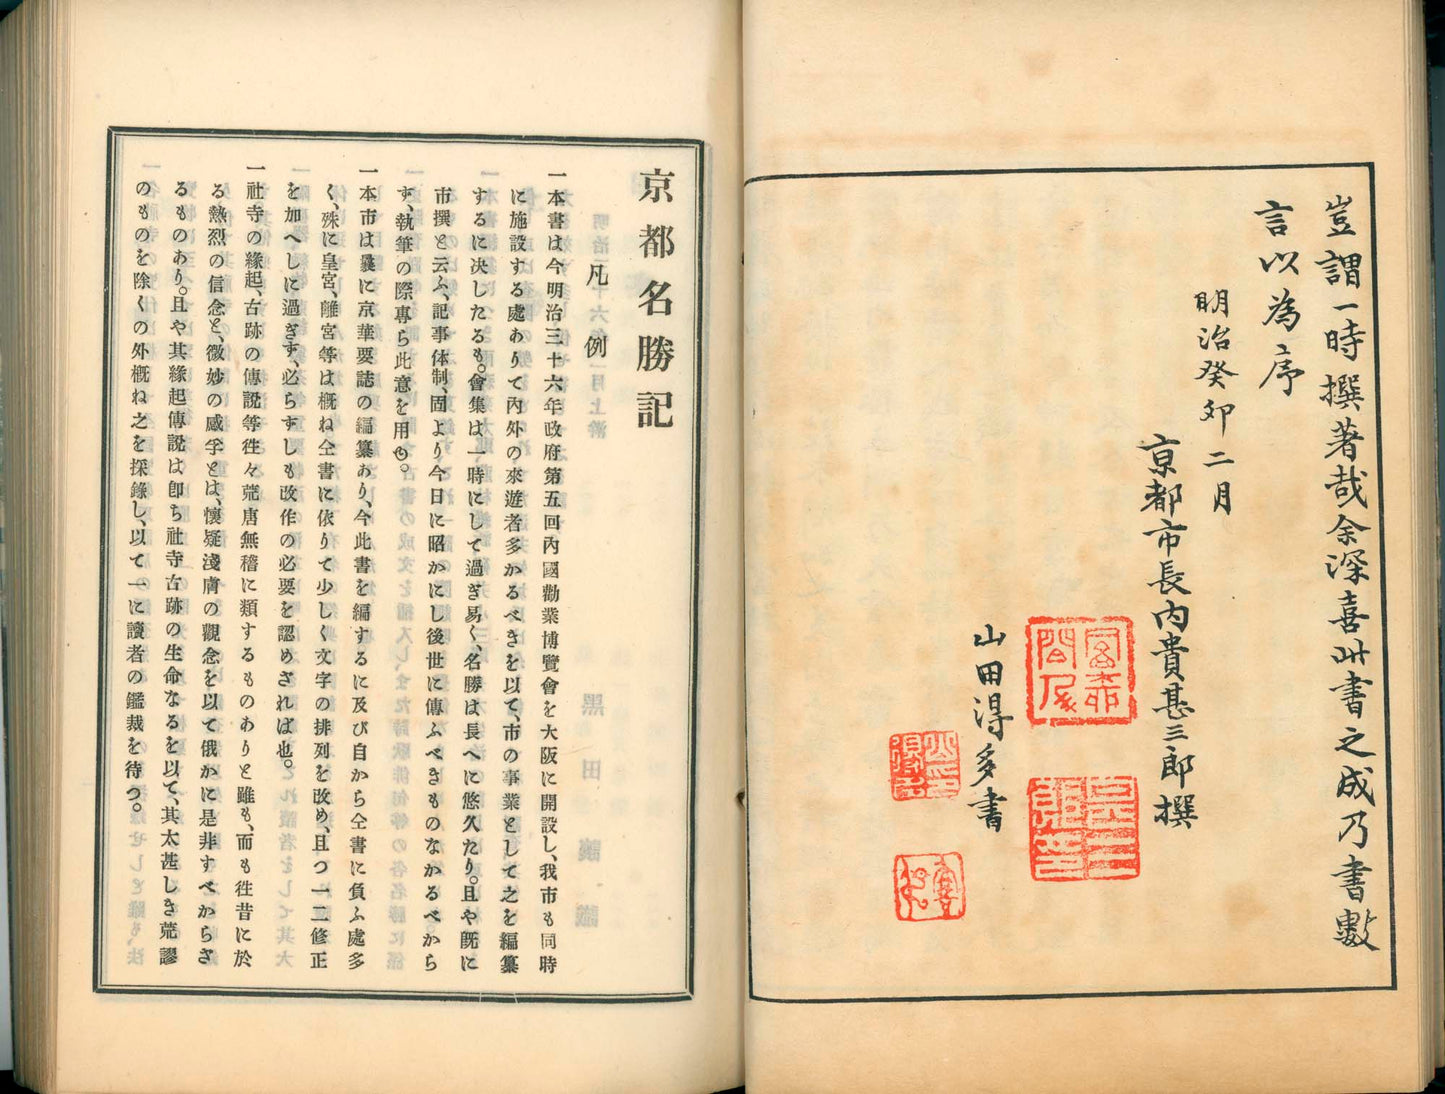 豈謂一時撰著哉余深喜此書之成乃書數
言以為序
明治癸卯二月
京都市長内貴甚三郎撰
山田得多書
京都名勝記
凡例
一本書は今明治三十六年政府第五回內國勸業博覽會を大阪に開設し、我市も同時
に施設する處ありて內外の來遊者多かるべきを以て、市の事業として之を編纂
するに決したるも。會集は一時にして過ぎ易く、名勝は長へに悠久たり。且や既に
市撰と云ふ、記事体制、固より今日に昭かにし後世に傳ふべきものなかるべから
ず、執筆の際專ら此意を用も。
一本市は曩に京華要誌の編纂あり、今此書を編するに及び自から仝書に負ふ處多
く、殊に皇宮、離宮等は概ね仝書に依りて少しく文字の排列を改め、且つ一二修正
を加へしに過ぎず、必らずしも改作の必要を認めざれば也。
一社寺の緣起、古跡の傳説等徃々荒唐無稽に類するものありと雖も、而も徃昔に於
る熱烈の信念と、微妙の感孚とは、懷疑淺膚の觀念を以て俄かに是非すべからざ
るものあり。且や其緣起傳説は卽ち社寺古跡の生命なるを以て、其太甚しき荒謬
のものを除くの外概ね之を採錄し、以て一に讀者の鑑裁を待つ。